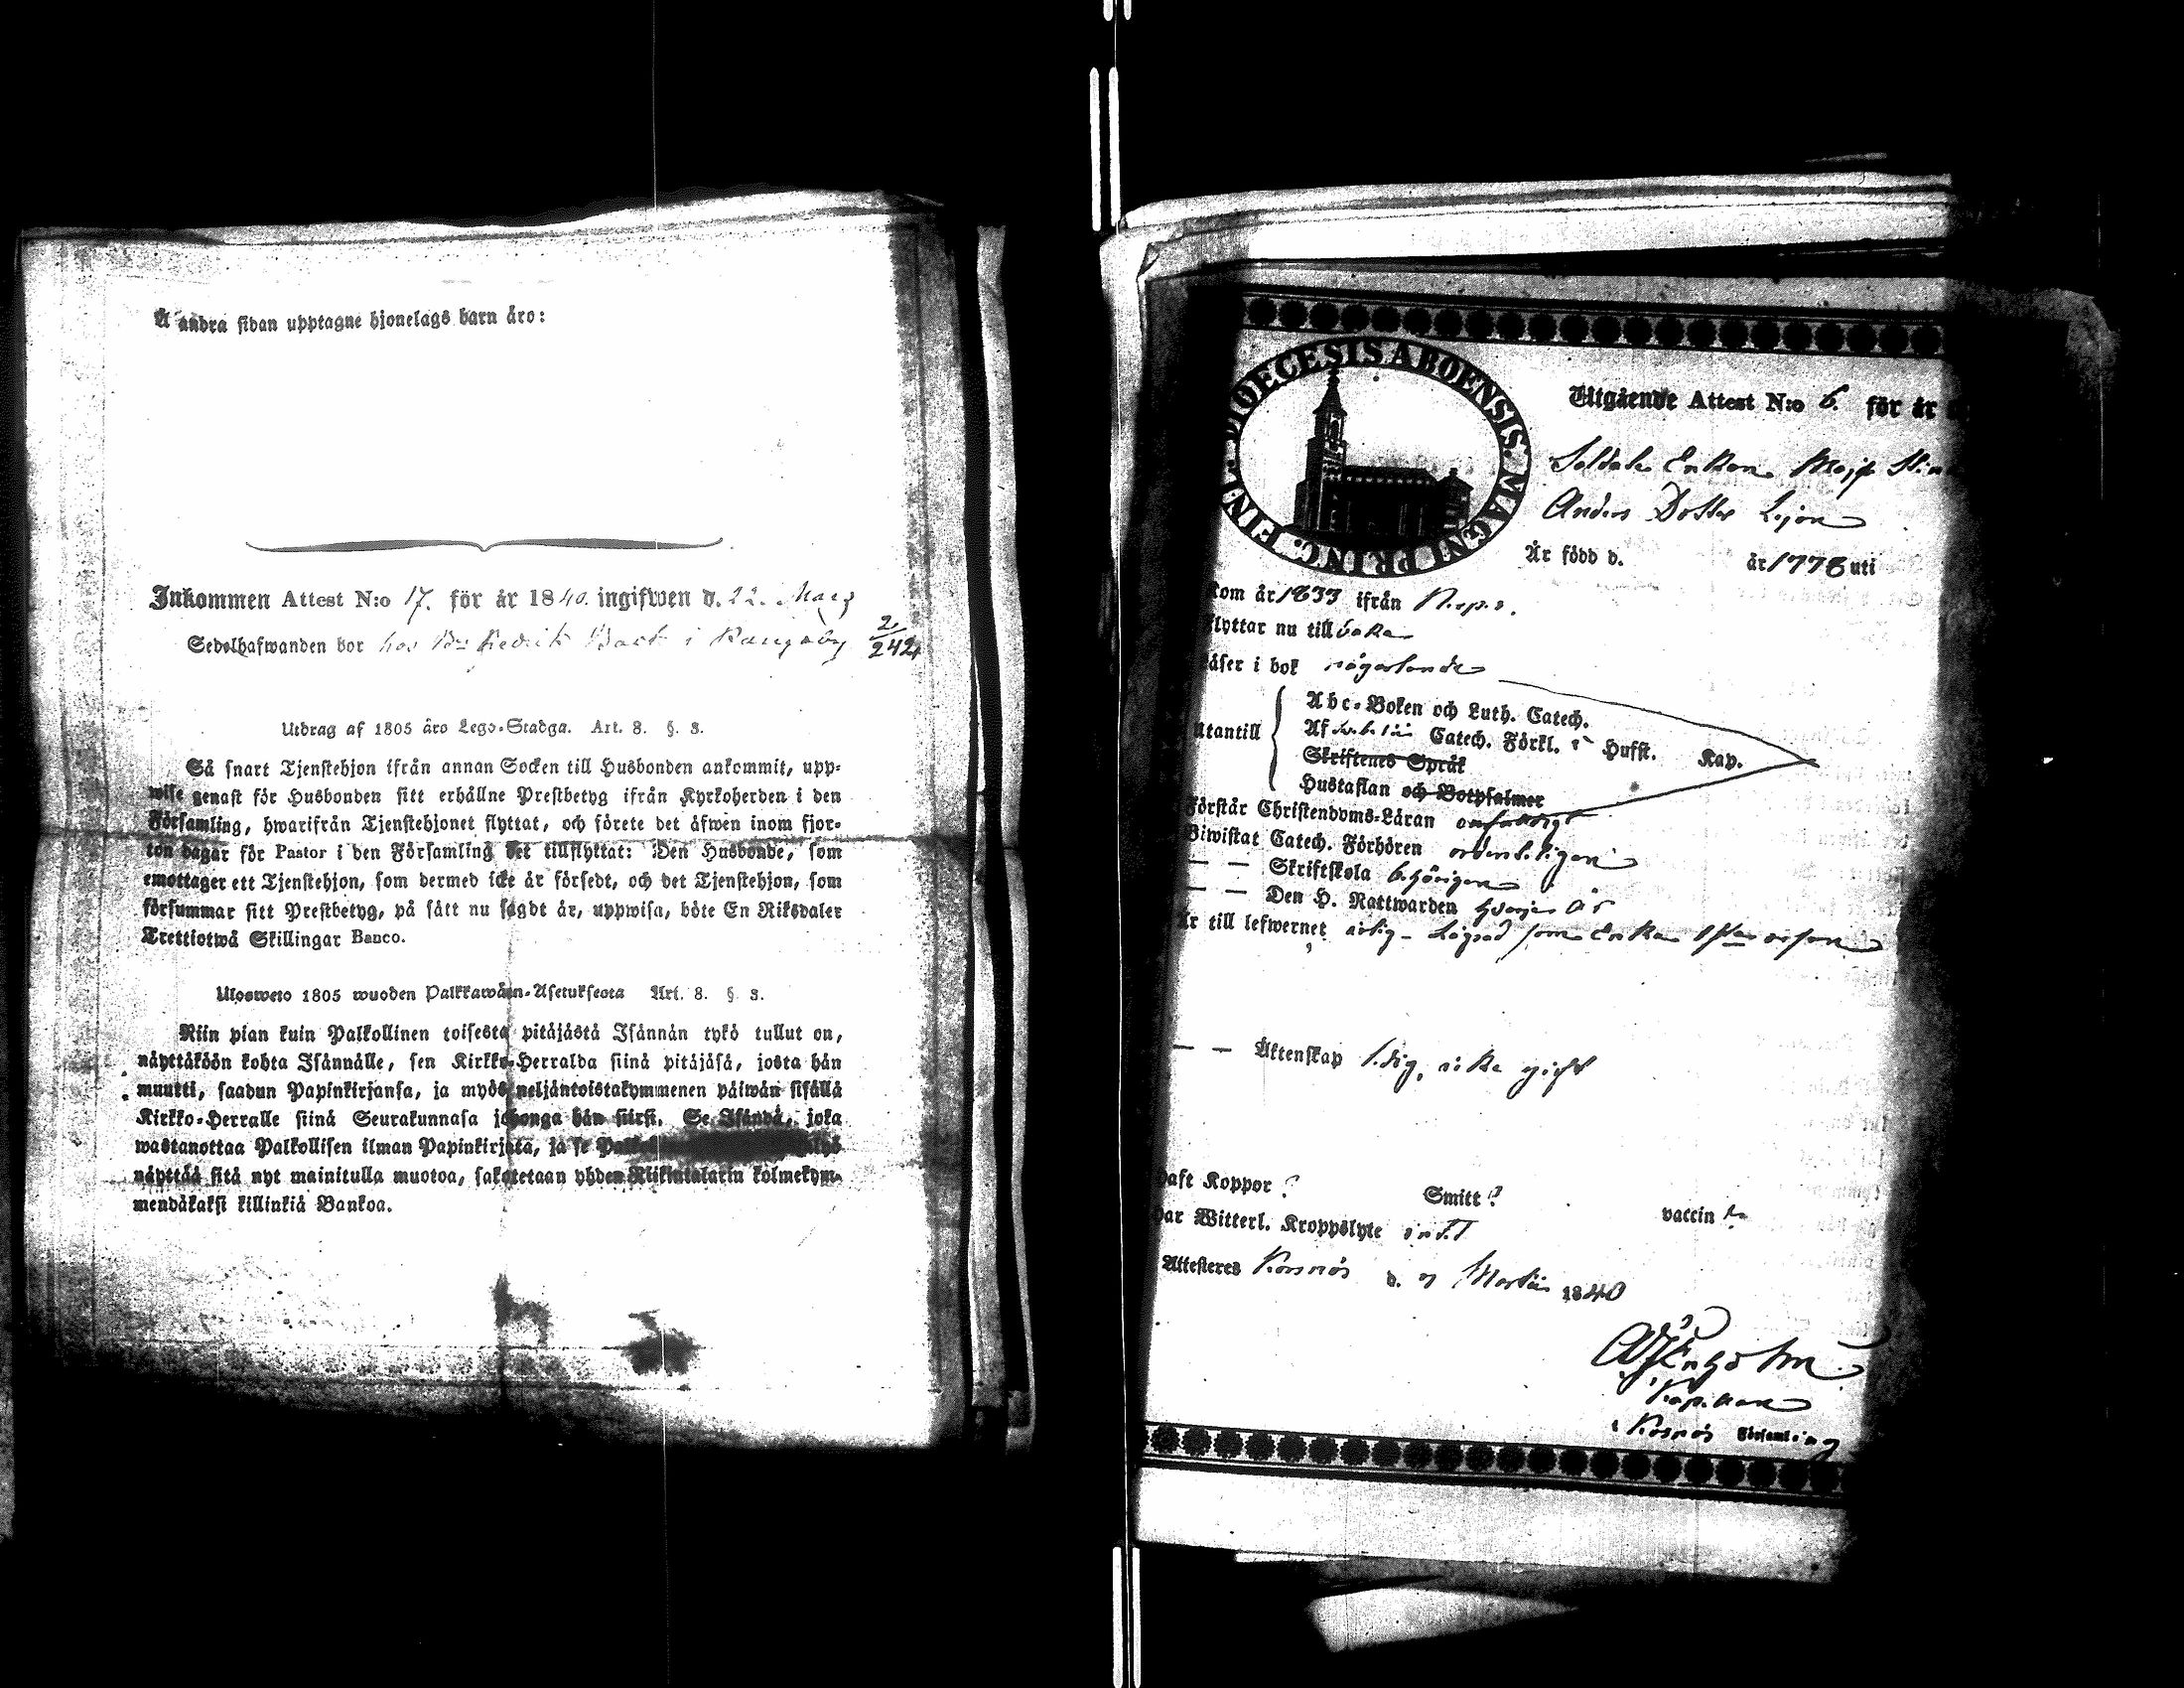 Å andra sidan upptagne hjonelags barn äro:
Inkommen Attest N:o 17. för år 1840. ingifwen d. 22. Mars
Sedelhafwanden bor hos Bn Fredrik Back i
2/242
Utdrag af 1805 års Lego-Stadga. Art. 8. §. 3.
Så snart Tjenstehjon ifrån annan Socken till Husbonden ankommit, upp-
wise genast för Husbonden sitt erhållne Prestbetyg ifrån Kyrkoherden i den
Församling, hwarifrån Tjenstehjonet flyttat, och förete det äfwen inom fjor-
ton dagar för Pastor i den Församling det tillflyttat: Den Husbonde, som
emottager ett Tjenstehjon, som dermed icke är försedt, och det Tjenstehjon, som
försummar sitt Prestbetyg, på sätt nu sagdt är, uppwisa, böte En Riksdaler
Trettiotwå Skillingar Banco.
Ulosweto 1805 wuoden Palkkawäen-Asetuksesta Art. 8. §. 3.
Niin pian kuin Palkollinen toisesta pitäjästä Isännän tykö tullut on,
näyttäköön kohta Isännälle, sen Kirkko-Herralda siinä pitäjäsä, josta hän
muutti, saadun Papinkirjansa, ja myös neljäntoistakymmenen päiwän sisällä
Kirkko-Herralle siinä Seurakunnasa johonga hän siirsi. Se Isändä, joka
wastanottaa Palkollisen ilman Papinkirjata, ja se
näyttää sitä nyt mainitulla muotoa, sakotetaan yhden Riikintalarin kolmekym-
mendäkaksi killinkiä Bankoa.
FINL. DIOECESIS ABOENSIS. MAGNI PRINC.
Utgående Attest N:o 6. för år
Soldats Enkan Maja Stina
Anders Dotter Lejon
Är född d. år 1778 uti
Kom år 1833 ifrån
flyttar nu till baka
Läser i bok någorlunda
Utantill
Abc-Boken och Luth. Catech.
Af Catech. Förkl. Hufst. Kap.
Skriftenes Språk
Hustaflan och Botpsalmer
Förstår Christendoms-Läran enfaldigt
Biwistat Catech. Förhören ordenteligen
— — Skriftskola behörigen
— — Den H. Nattwarden hvarje år
Är till lefwernet ärlig
— — Äktenskap ledig, icke gift
Haft Koppor ? Smitt ? vaccin ?
Har Witterl. Kroppslyte intet
Attesteres Kosnäs d. 9 Martii 1840
Kapellan
i Kosnäs Församling